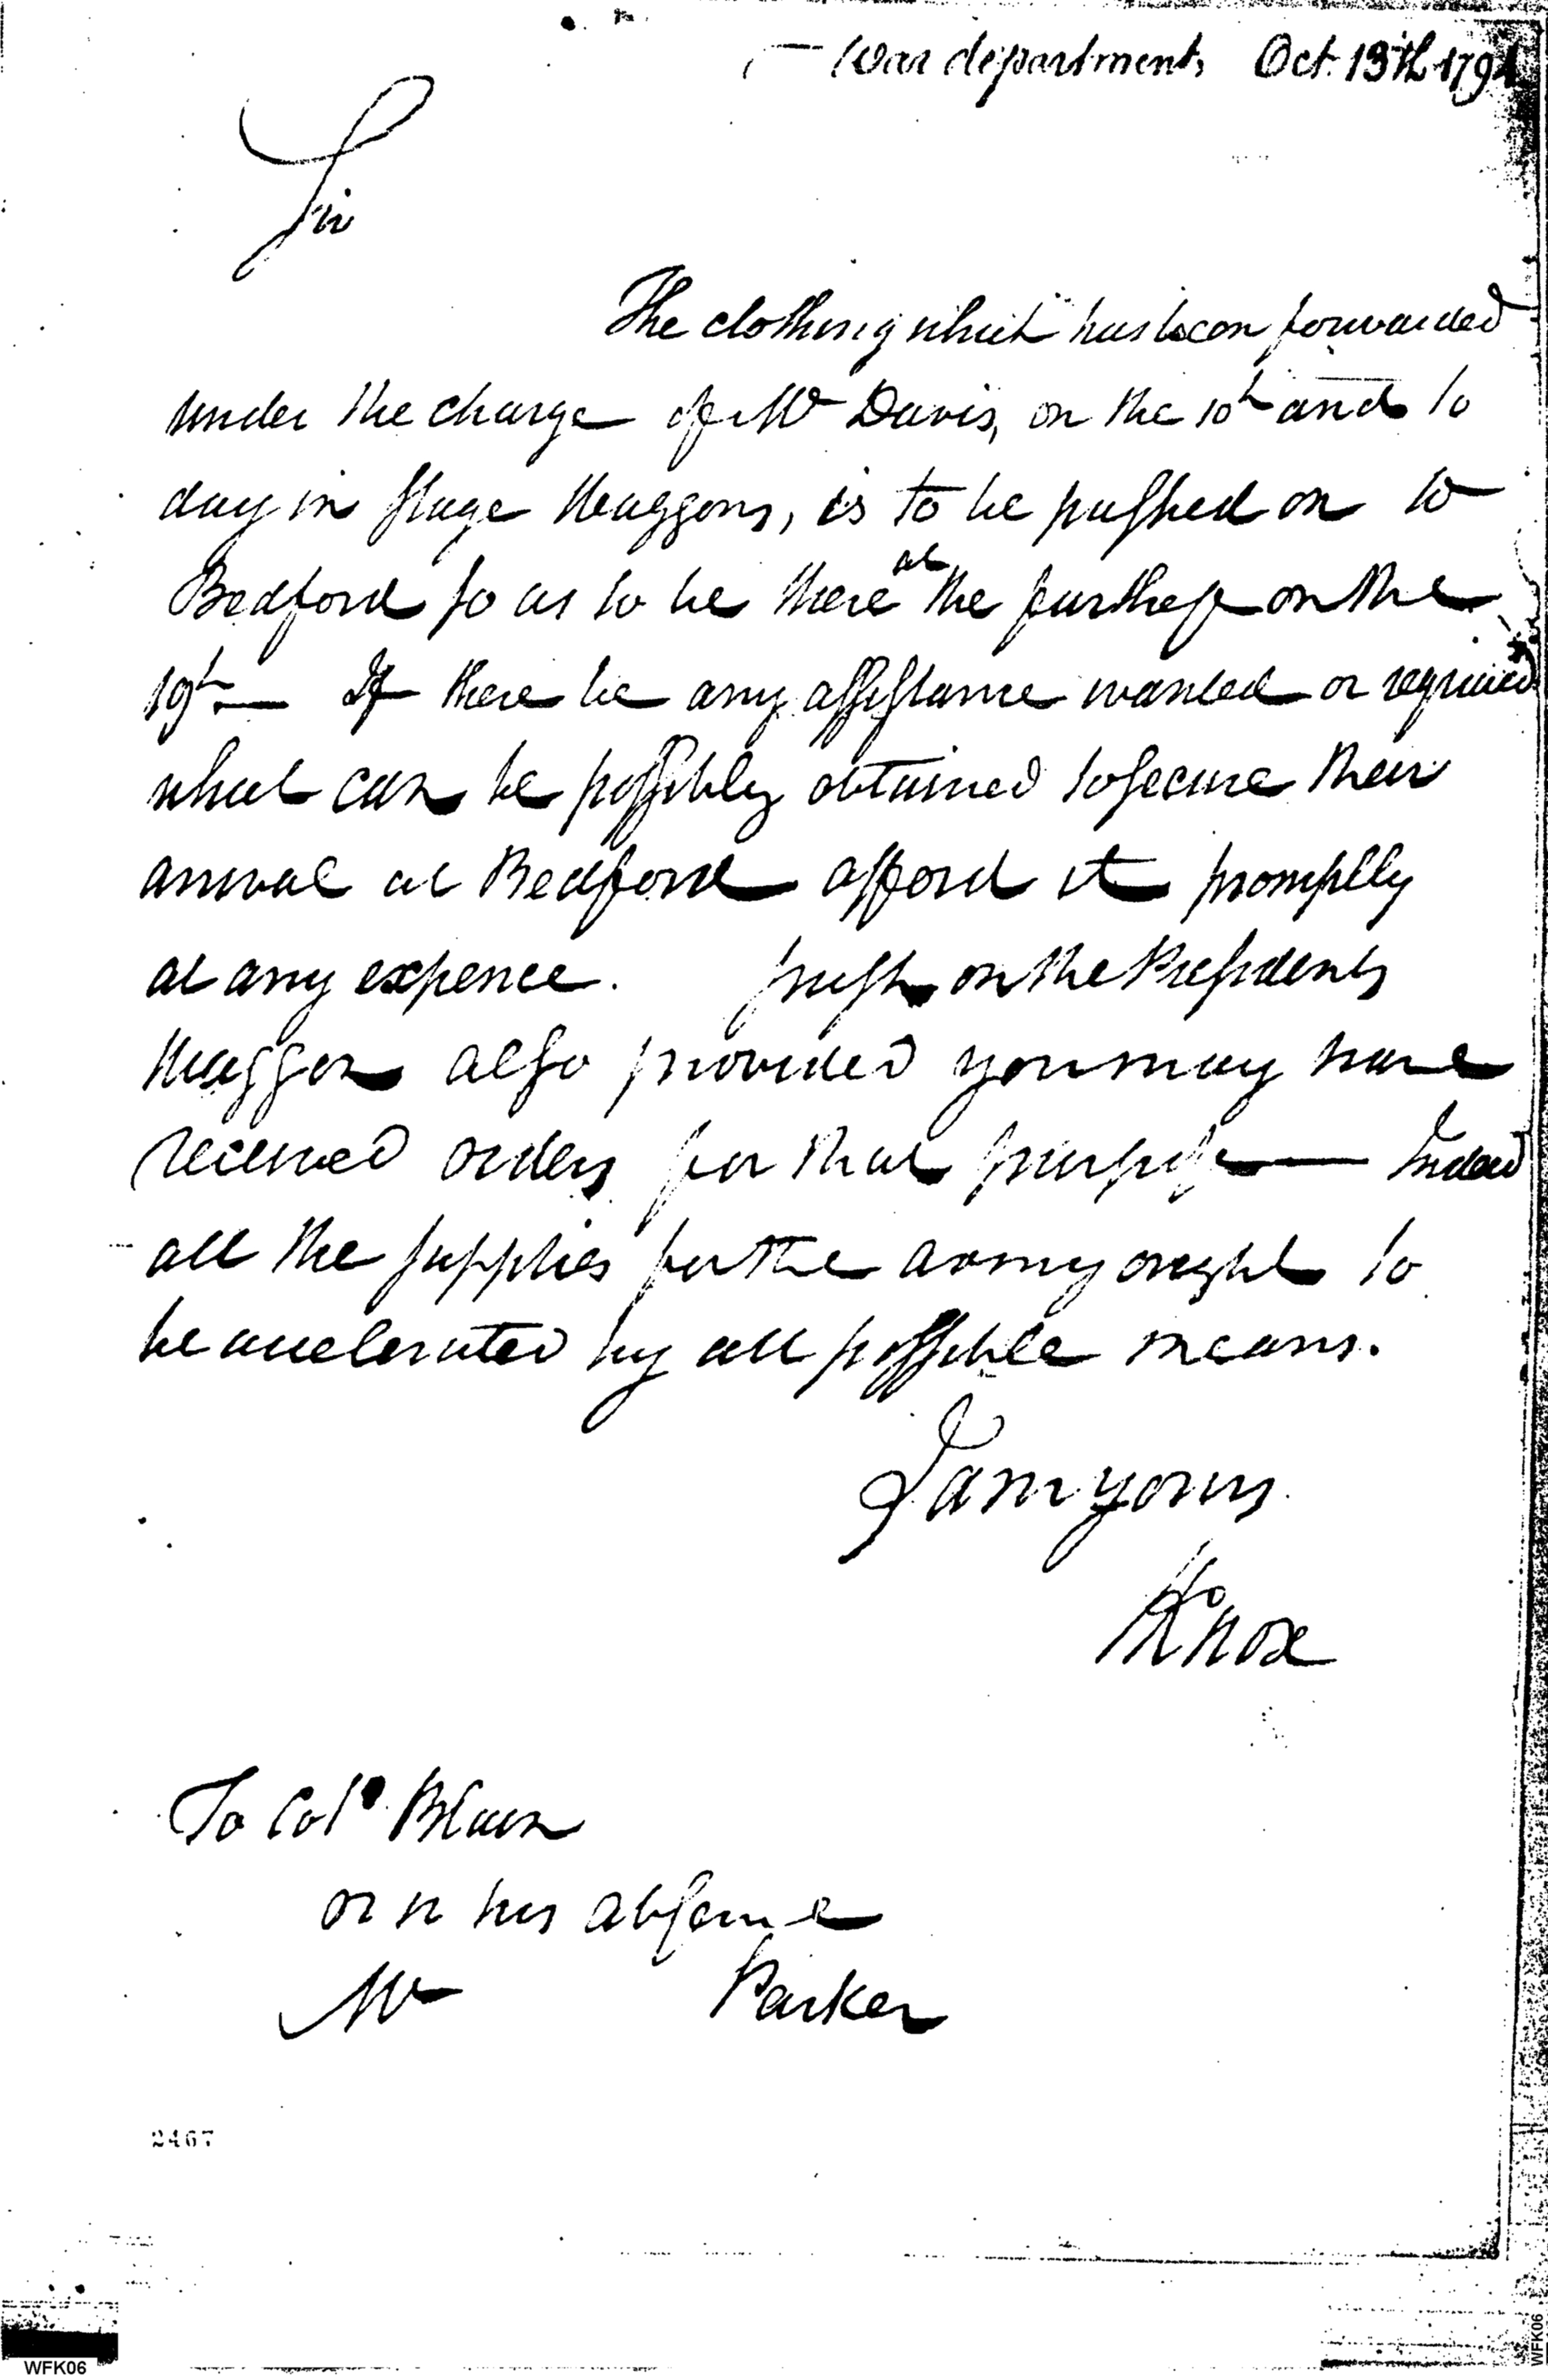 War department, Oct. 13th 1794
Sir
The clothing which has been forwarded
under the charge of Mr Davis, on the 10th and to
day in stage Waggons, is to be pushed on to
Bedford so as to be there at the furthest on the
19th — If there be any assistance wanted or required
what can be possibly obtained to secure their
arrival at Bedford afford it promptly
at any expence. push on the Presidents
Waggon also provided you may have
received orders for that purpose — Indeed
all the supplies for the army ought to
be accelerated by all possible means.
I am yours
H Knox
To Colo. Blain
or in his absence
Mr Parker
2467
WFK06
WFK06